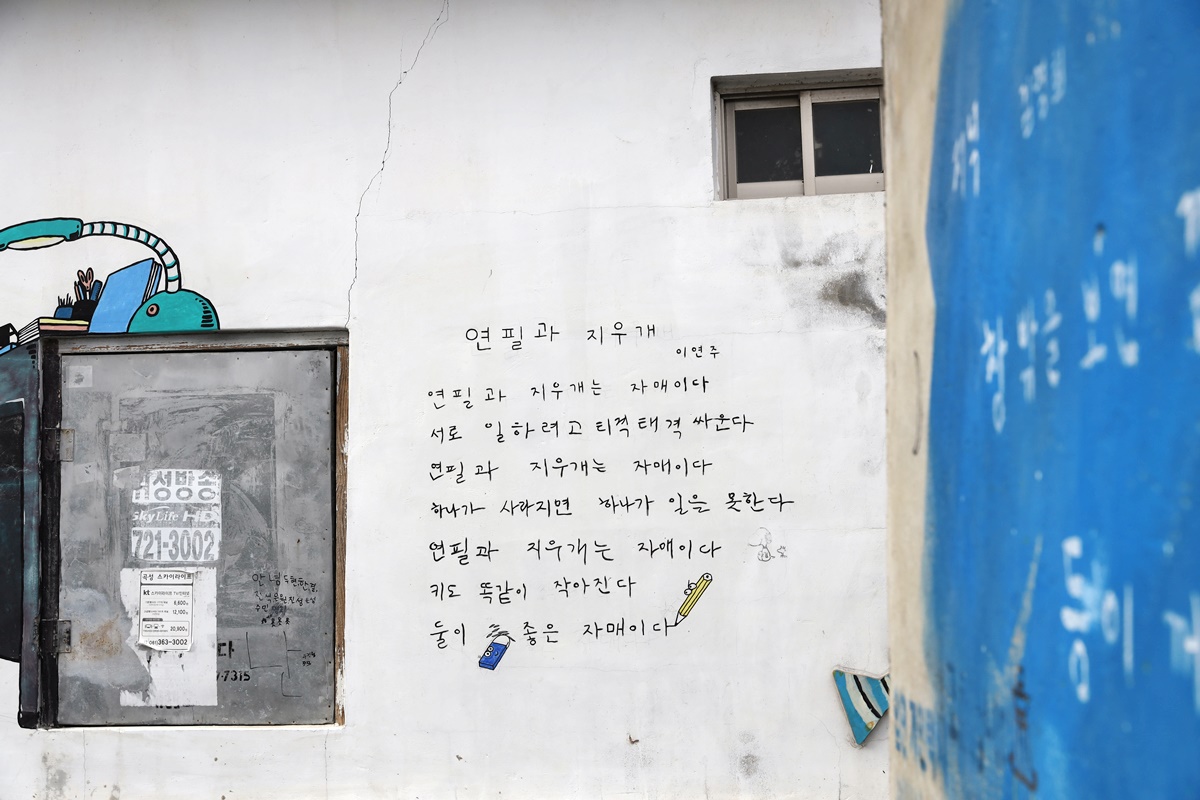 연필과 지우개
이연주
연필과 지우개는 자매이다
서로 일하려고 티격태격 싸운다
연필과 지우개는 자매이다
하나가 사라지면 하나가 일을 못한다
연필과 지우개는 자매이다
키도 똑같이 작아진다
둘이 좋은 자매이다
성방송
SkyLife HD
721-3002
곡성 스카이라이프
kt 스카이라이프
363-3002
다
7315
저녁
창밖을 보면